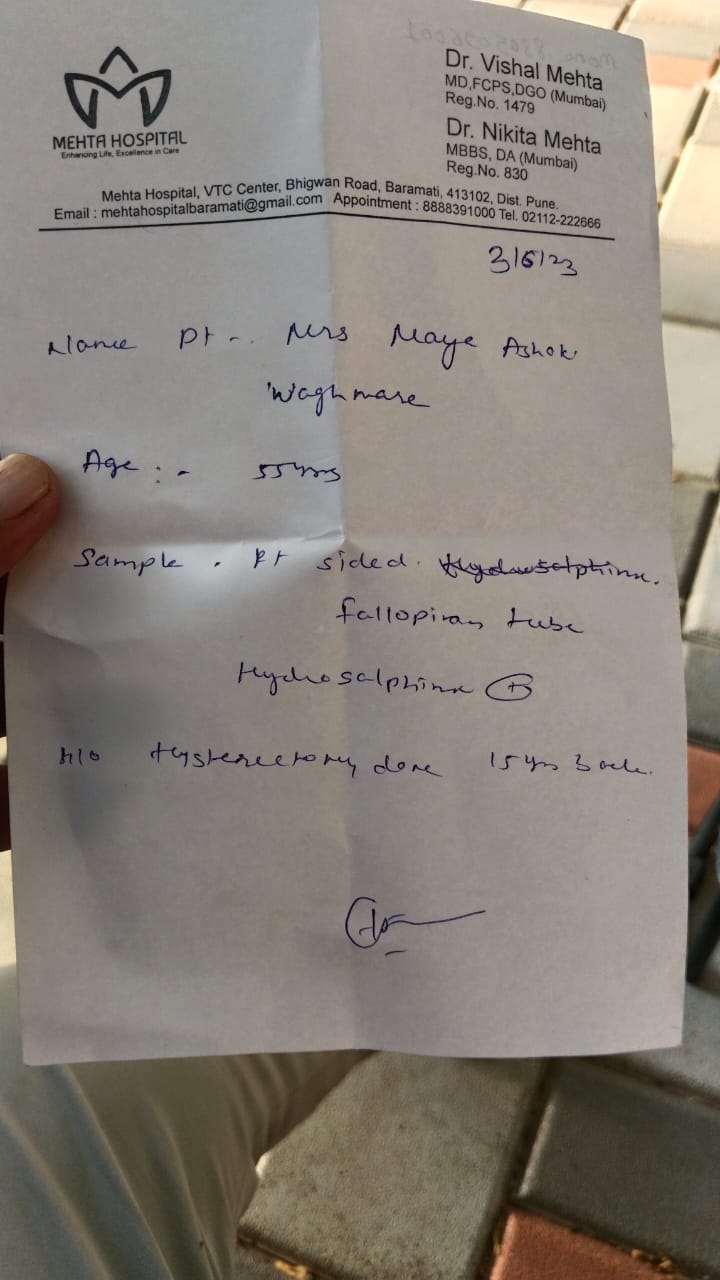 MEHTA HOSPITAL
Enhancing Life, Excellence in Care
Dr. Vishal Mehta
MD,FCPS,DGO (Mumbai)
Reg.No. 1479
Dr. Nikita Mehta
MBBS, DA (Mumbai)
Reg.No. 830
Mehta Hospital, VTC Center, Bhigwan Road, Baramati, 413102, Dist. Pune.
Email : mehtahospitalbaramati@gmail.com Appointment : 8888391000 Tel. 02112-222666
3/6/23
Name Pt -. Mrs Maya Ashok
Waghmare
Age : - 55 yrs
Sample . Rt sided.
fallopian tube
Hydrosalphinx +
H/o Hysterectomy done 15 yrs back.